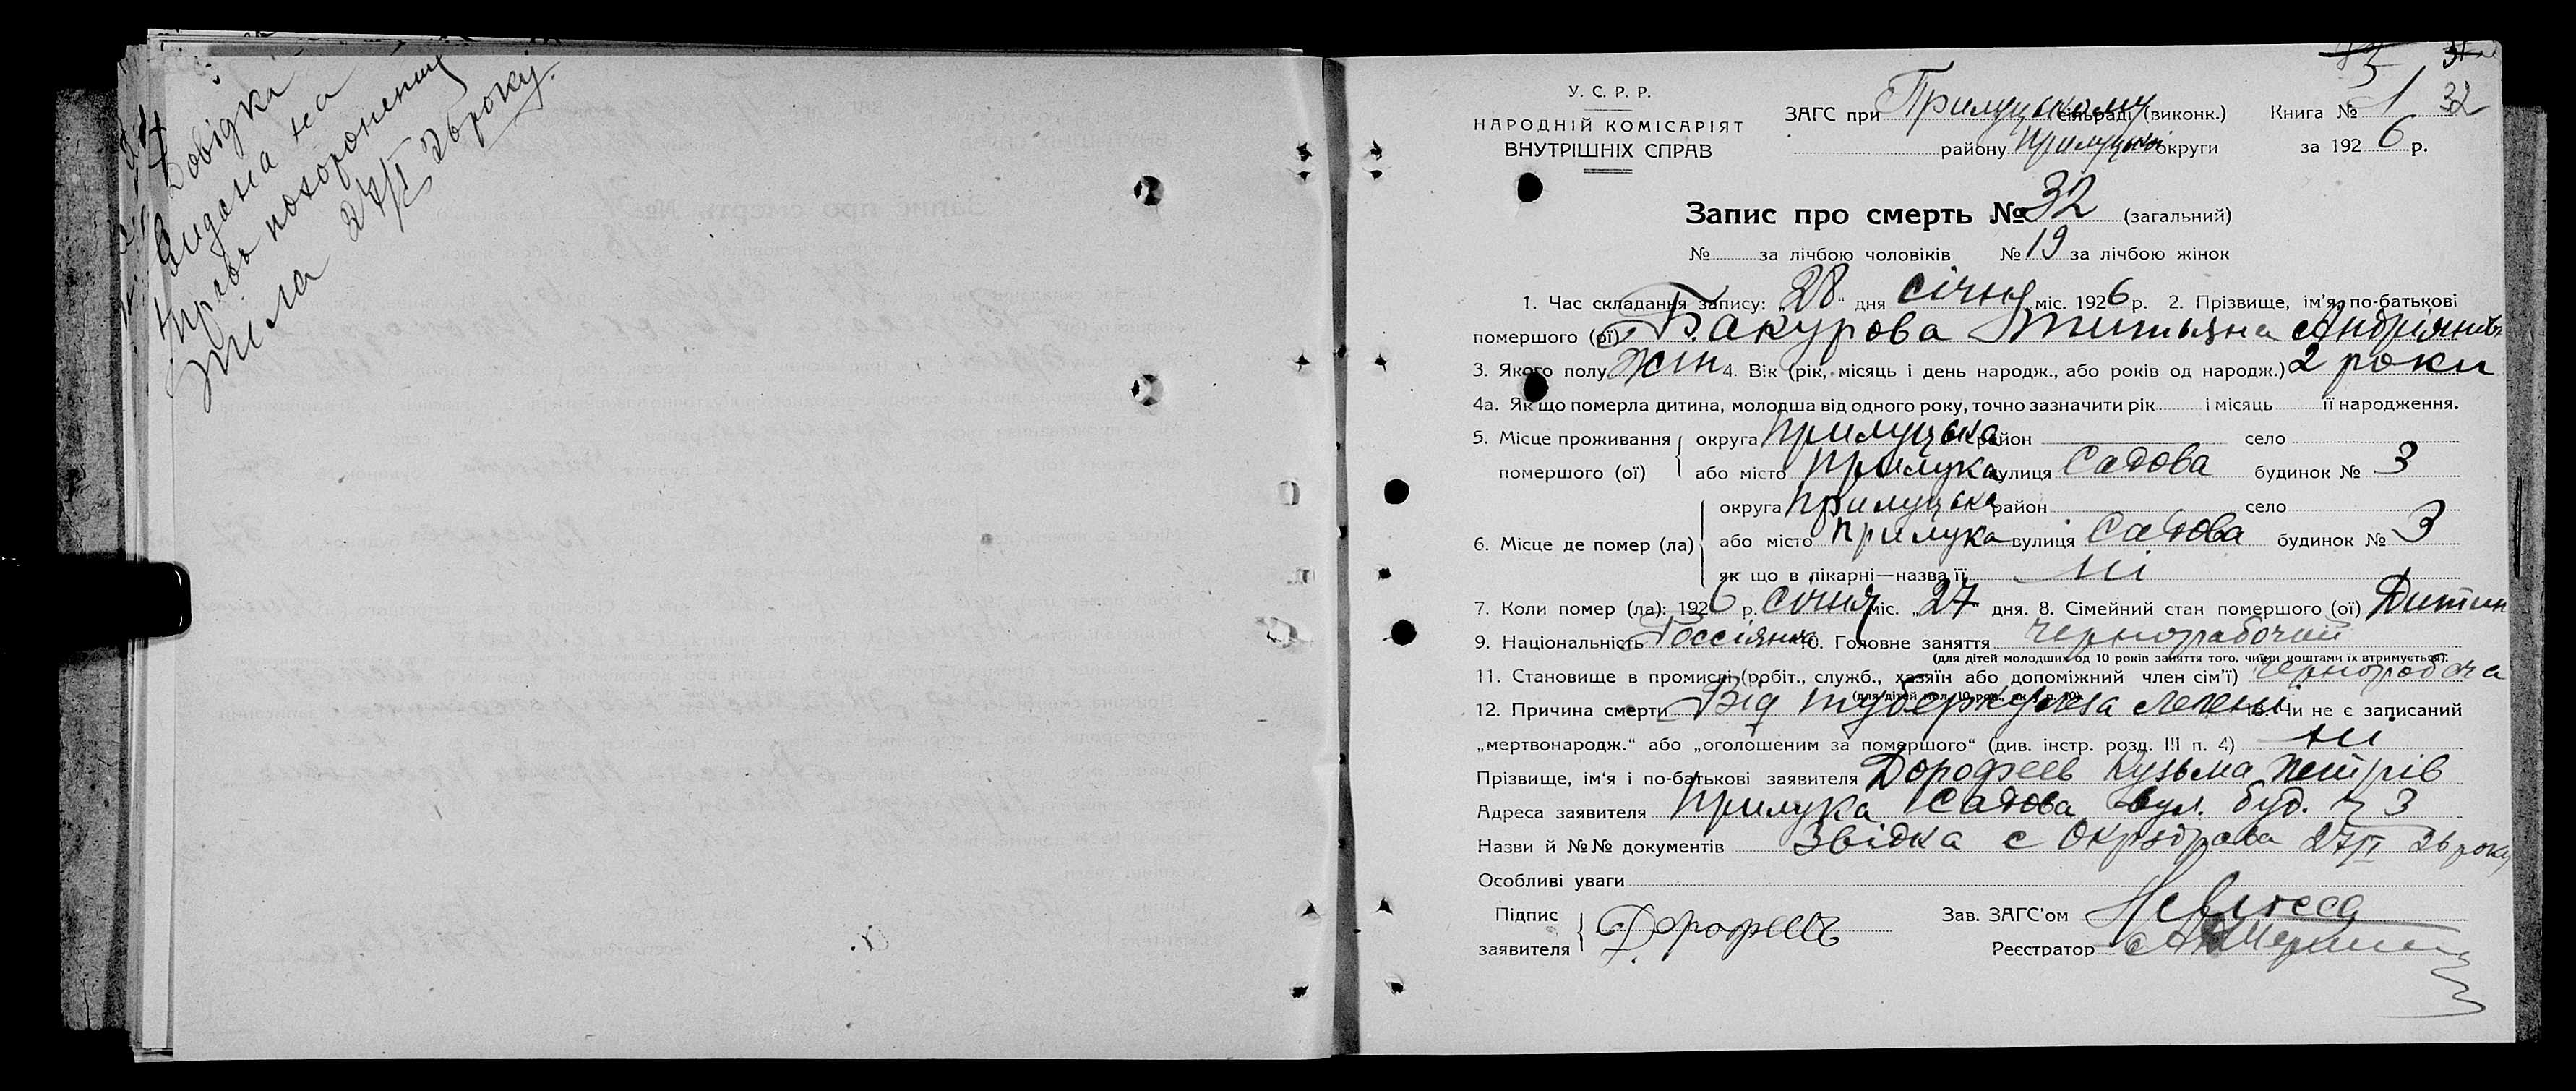 Довідка
видана на
право похоронення
тіла 27/I 26 року.
32
У. С. Р. Р.
НАРОДНІЙ КОМІСАРІЯТ
ВНУТРІШНІХ СПРАВ
ЗАГС при Прилуцькому сільраді (виконк.) Книга № 1
району Прилуцькі округи за 1926 р.
Запис про смерть № 32 (загальний)
№ за лічбою чоловіків № 19 за лічбою жінок
1. Час складання запису: „28“ дня січня міс. 1926 р. 2. Прізвище, ім'я, по-батькові
помершого (ої) Бакурова Титьяна Андріянів
3. Якого полу жін 4. Вік (рік, місяць і день народж., або років од народж.) 2 роки
4а. Як що померла дитина, молодша від одного року, точно зазначити рік і місяць її народження.
5. Місце проживання помершого (ої) округа Прилуцька район село
або місто Прилука вулиця Садова будинок № 3
6. Місце де помер (ла) округа Прилуцька район село
або місто Прилука вулиця Садова будинок № 3
як що в лікарні—назва її ні
7. Коли помер (ла): 1926 р. січня міс. „27 дня. 8. Сімейний стан помершого (ої) Дитин
9. Національність Россіянка 10. Головне заняття чернорабочий
(для дітей молодших од 10 років заняття того, чиїми коштами їх втримується).
11. Становище в промислі (робіт., служб., хазяїн або допоміжний член сім'ї) чернороабоча
(для дітей мол. 10 рок. як і п. 10)
12. Причина смерти Від туберкульоза легені 13. Чи не є записаний
„мертвонародж.“ або „оголошеним за помершого“ (див. інстр. розд. III п. 4) ні
Прізвище, ім'я і по-батькові заявителя Дорофеев Кузьма Петрів
Адреса заявителя Прилука Садова вул. буд. ч 3
Назви й №№ документів Звідка с Окрздрава 27/I 26 року
Особливі уваги
Підпис заявителя Дорофеевъ Зав. ЗАГС'ом
Реєстратор